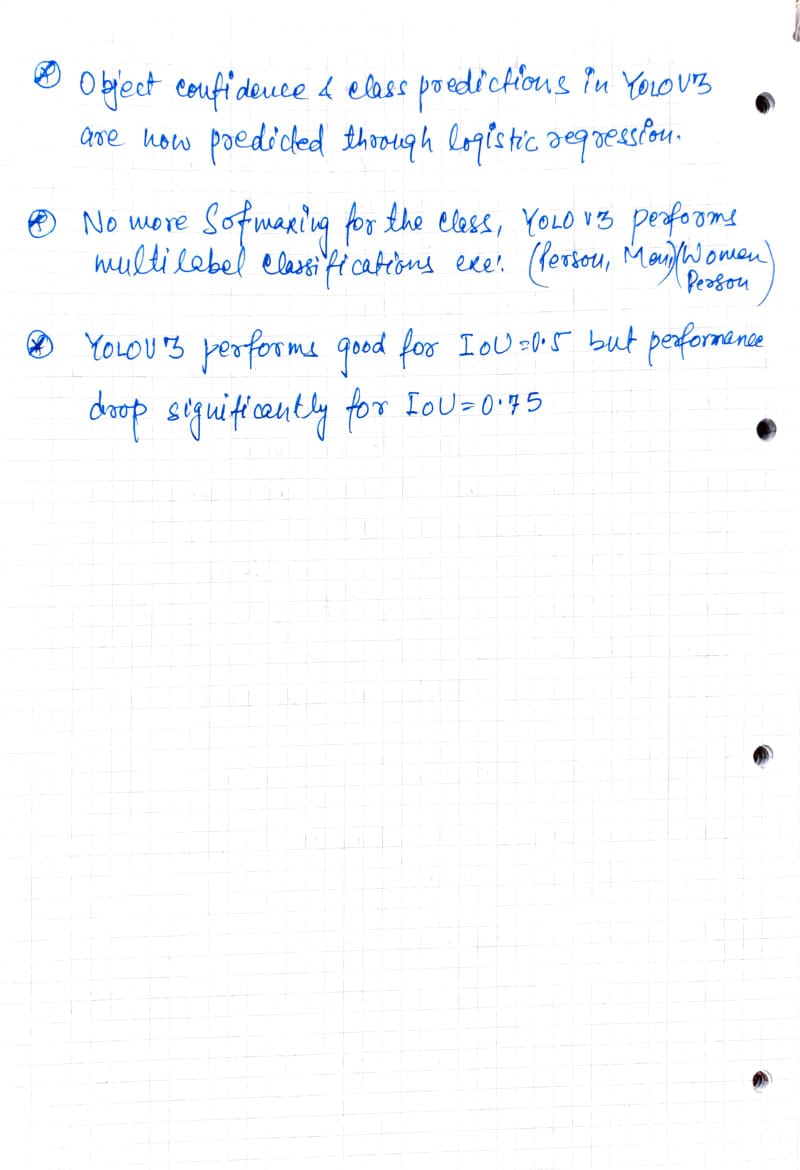 ⊛ Object confidence & class predictions in YOLOV3
are now predicted through logistic regression.
⊛ No more Sofmaxing for the class, YOLO V3 performs
multilabel classifications exe: (Person, Man)(Women,
Person)
⊛ YOLOV3 performs good for IoU=0.5 but performance
drop significantly for IoU=0.75